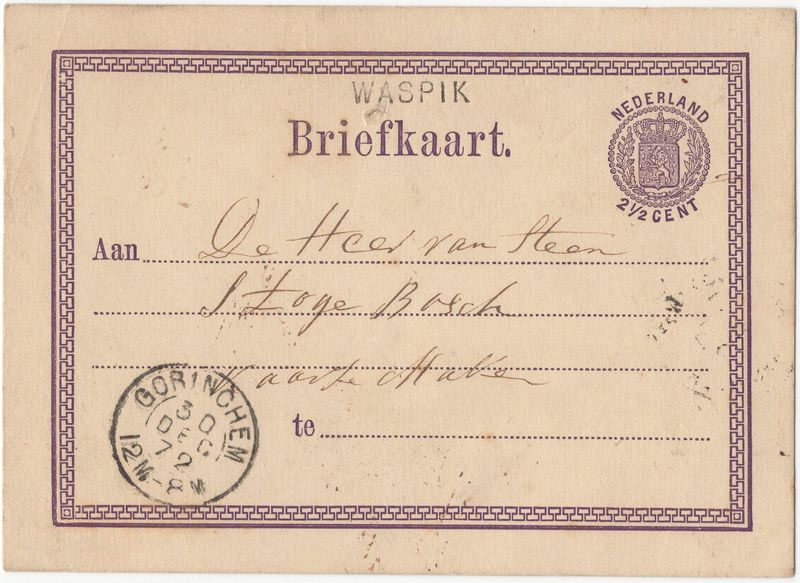 WASPIK
Briefkaart.
NEDERLAND
2½ CENT
Aan De Heer van Steen
Bosch
Haven
te
GORINCHEM
30
DEC
72
12M-8M